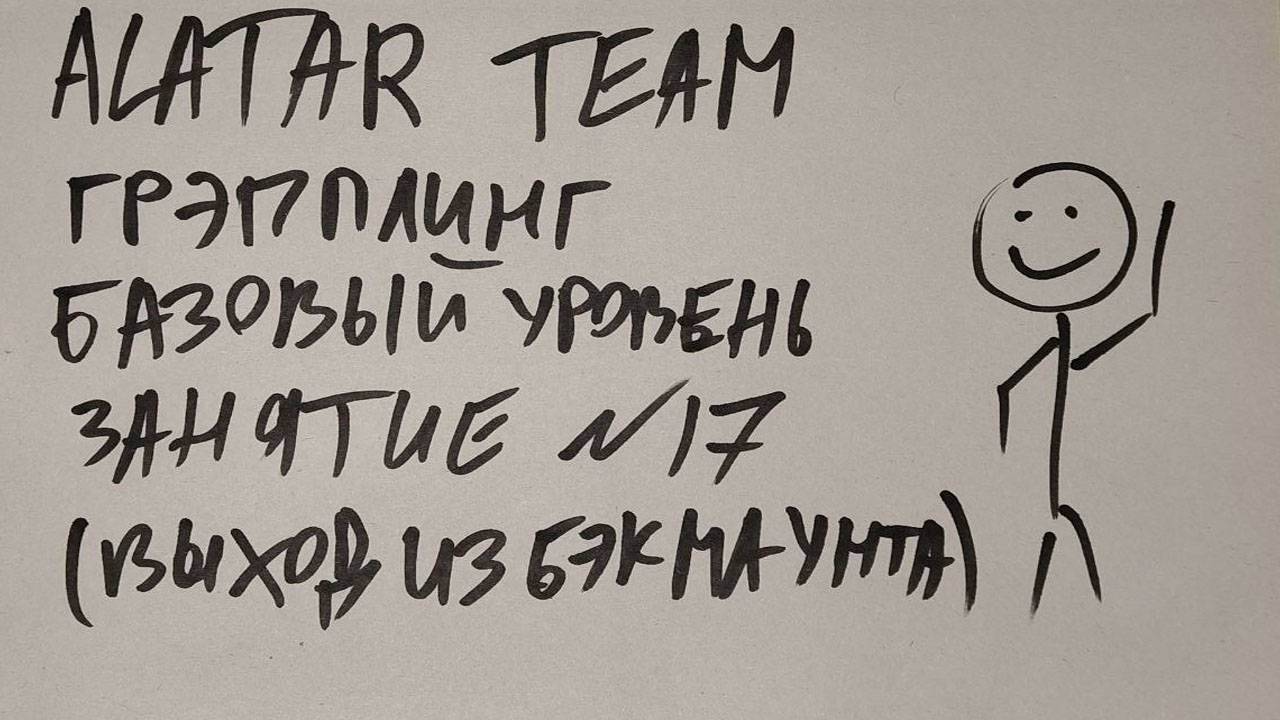 ALATAR TEAM
ГРЭППЛИНГ
БАЗОВЫЙ УРОВЕНЬ
ЗАНЯТИЕ №17
(ВЫХОД ИЗ БЭКМАУНТА)